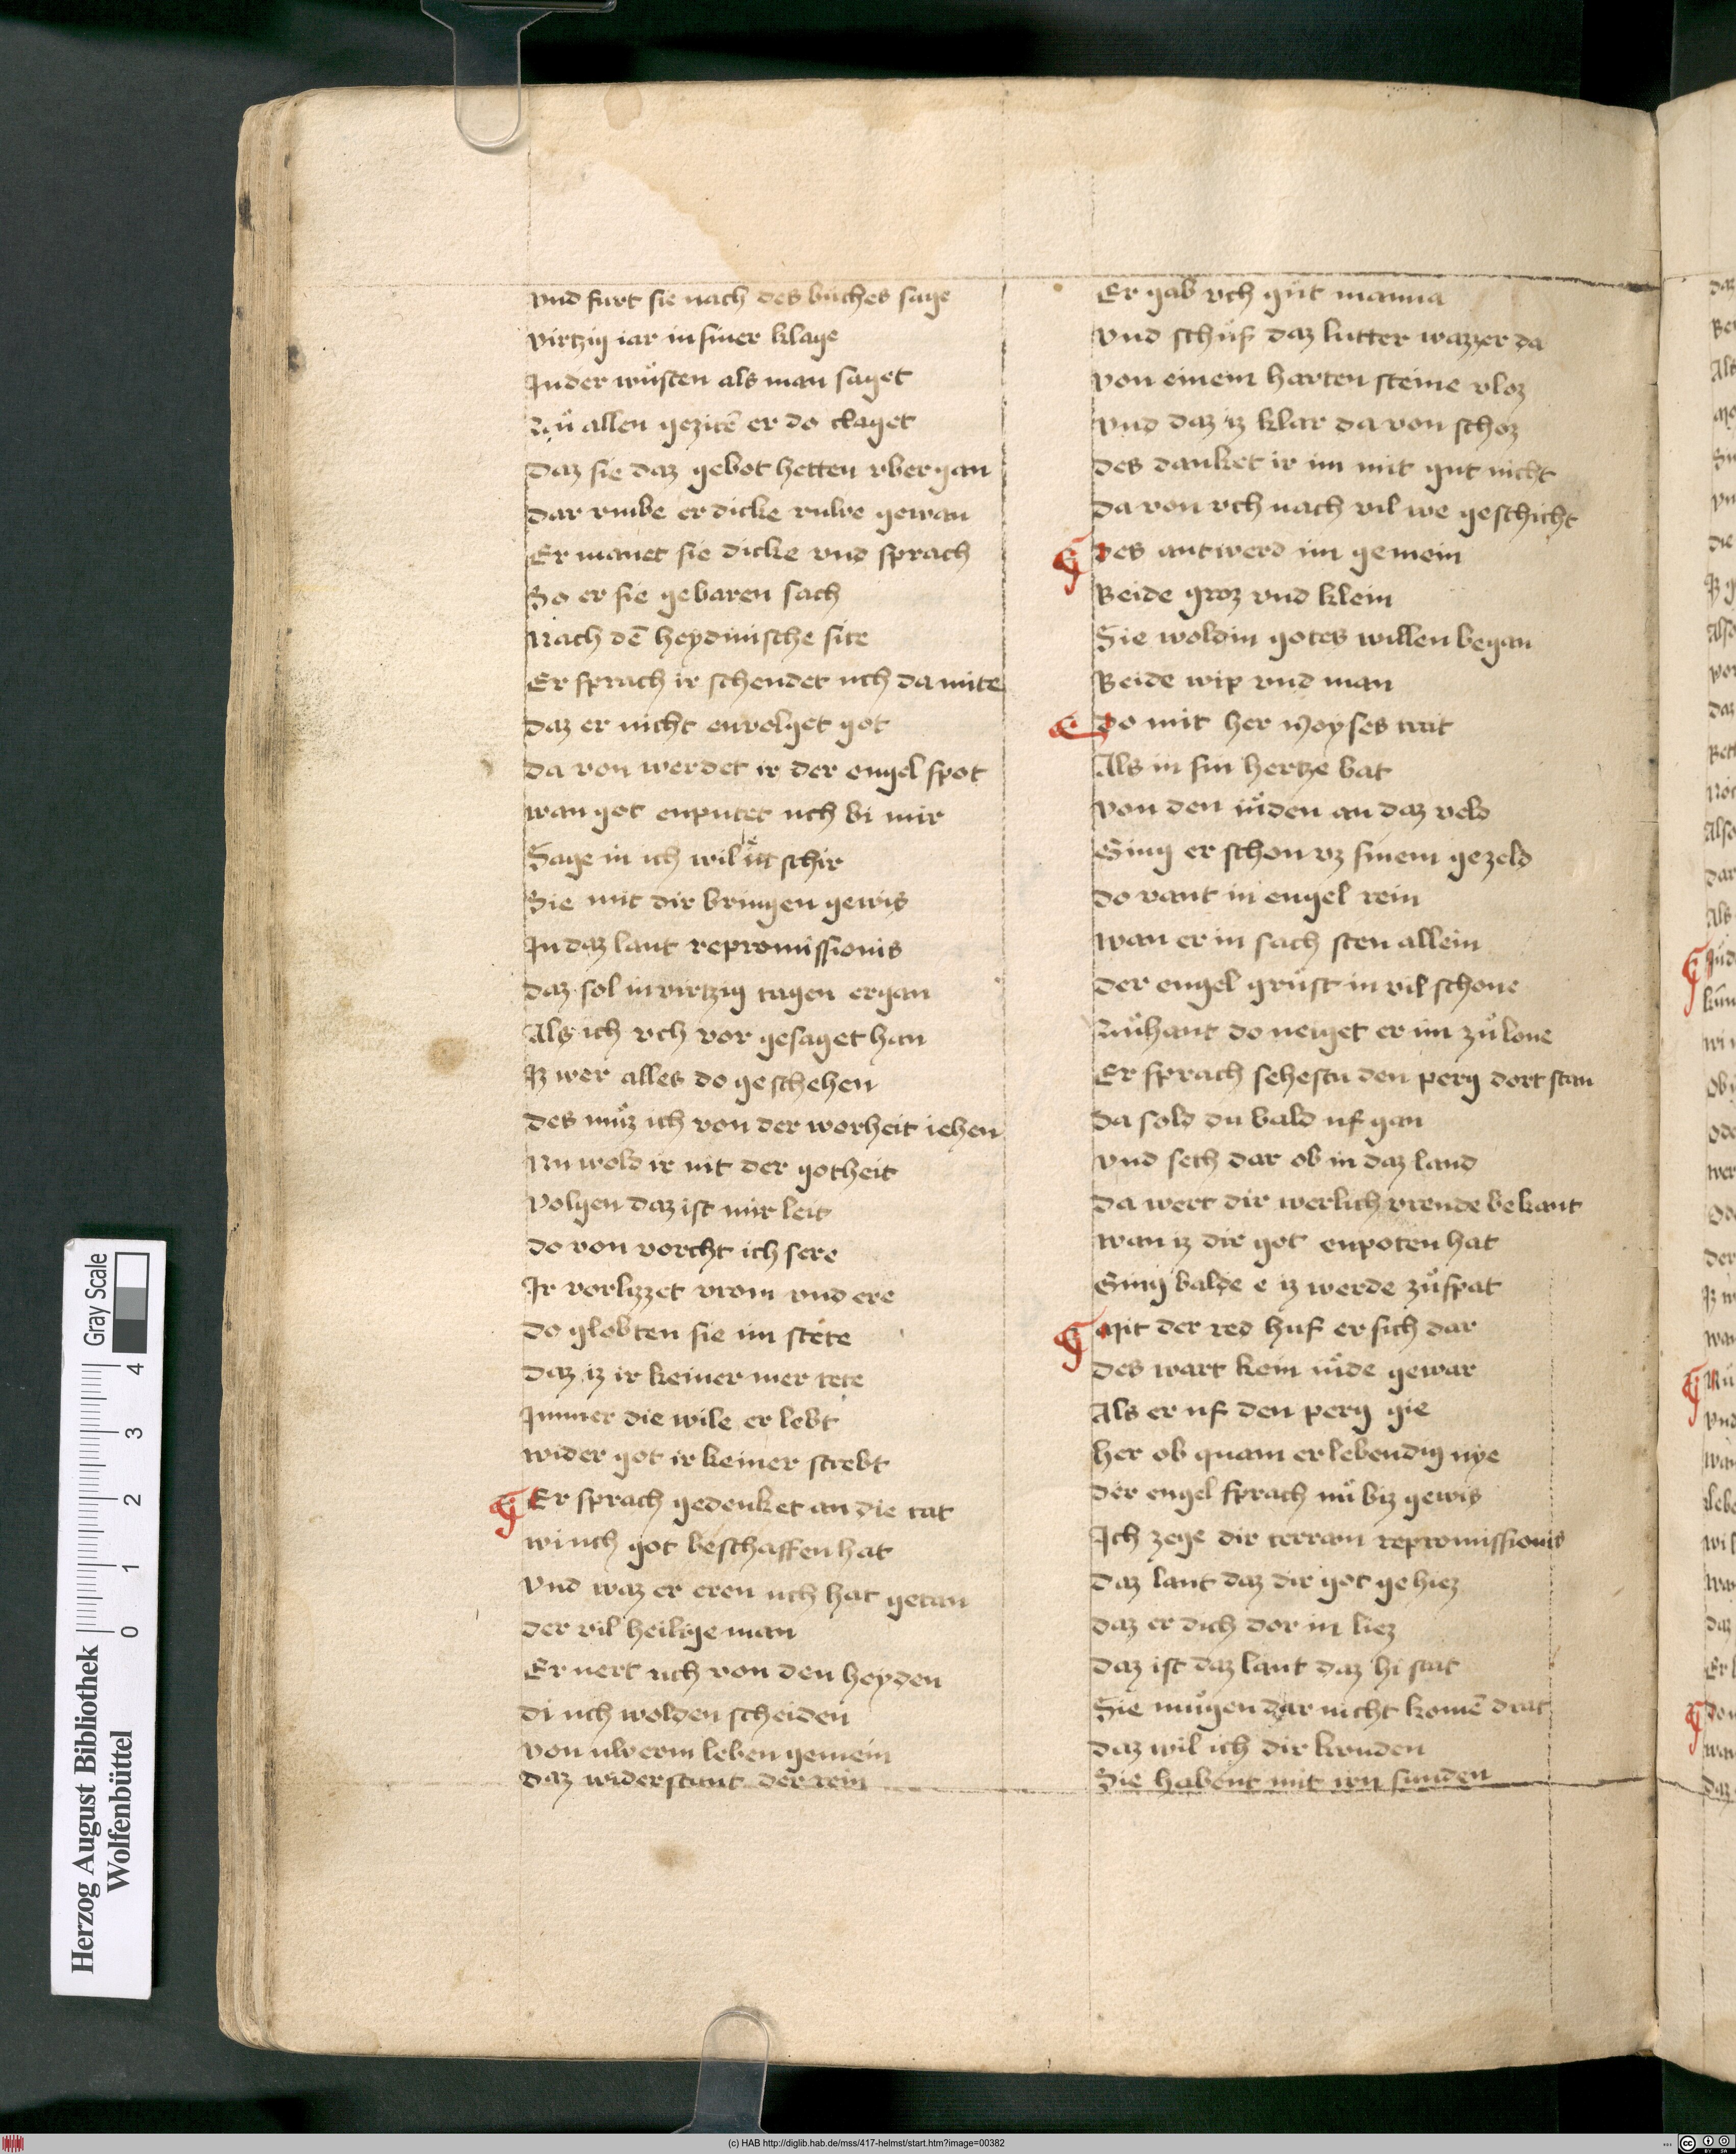 vnd furt sie nach des buches sage
virtzig iar in siner klage
In der wuͤsten als man saget
Zuͦ allen gezitē er do claget
Daz sie daz gebot hetten vbergan
Dar vmbe er dicke rulbe gewan
Er manet sie dicke vnd sprach
So er sie gebaren sach
Nach dē heydinische site
Er sprach ir schendet uch da mite
Daz er nicht envolget got
Da von werdet ir der engel spot
wan got enputet uch bi mir
Sage in ich wil schir
Sie mit dir bringen gewis
In daz lant repromissionis
Daz sol in virtzig tagen ergan
Als ich vch vor gesaget han
Iz wer alles do geschehen
Des muͦz ich von der worheit iehen
Nu wold ir nit der gotheit
Volgen daz ist mir leit
Do von vorcht ich sere
Ir vorlyzzet vrom vnd ere
Do globten sie im stete
Daz iz ir keiner mer tete
Immer die wile er lebt
wider got ir keiner strebt
Er sprach gedenket an die tat
wi uch got beschaffen hat
Vnd waz er eren uch hat getan
Der vil heilige man
Er nert uch von den heyden
Di uch wolden scheiden
von ulverm leben gemein
Daz widerstunt der rein
Er gab vch guͦt manna
Vnd schuͦf daz lutter wazzer da
von einem harten steine vloz
Vnd daz iz klar da von schoz
Des danket ir im mit gut nicht
Da von vch nach vil we geschicht
Des antwerd im gemein
Beide groz vnd klein
Sie woldin gotes willen began
Beide wip vnd man
Do mit her Moyses trat
Als in sin hertze bat
Von den iuͤden an daz veld
Ging er schon vz sinem gezeld
Do vant in engel rein
wan er in sach sten allein
Der engel gruͤst in vil schone
Zuͦhant do neiget er im zuͦ lone
Er sprach sehestu den perg dort stan
Da sold du bald uf gan
Vnd seth dar ob in daz land
Da wert dir werlich vrende bekant
wan iz dir got enpoten hat
Ging balde e iz werde zuͦ spat
Mit der red huf er sich dar
Des wart kein iuͤde gewar
Als er uf den perg gie
her ob quam er lebendig nye
Der engel sprach nuͦ biz gewis
Ich zege dir terram repromissionis
Daz lant daz dir got gehiez
Daz er dich dor in liez
Daz ist daz lant daz hi stat
Sie muͤgen dar nicht komē drat
Daz wil ich dir kunden
Sie habent mit irn sunden
Herzog August Bibliothek
Wolfenbüttel
0 1 2 3 4
Gray Scale
(c) HAB http://diglib.hab.de/mss/417-helmst/start.htm?image=00382